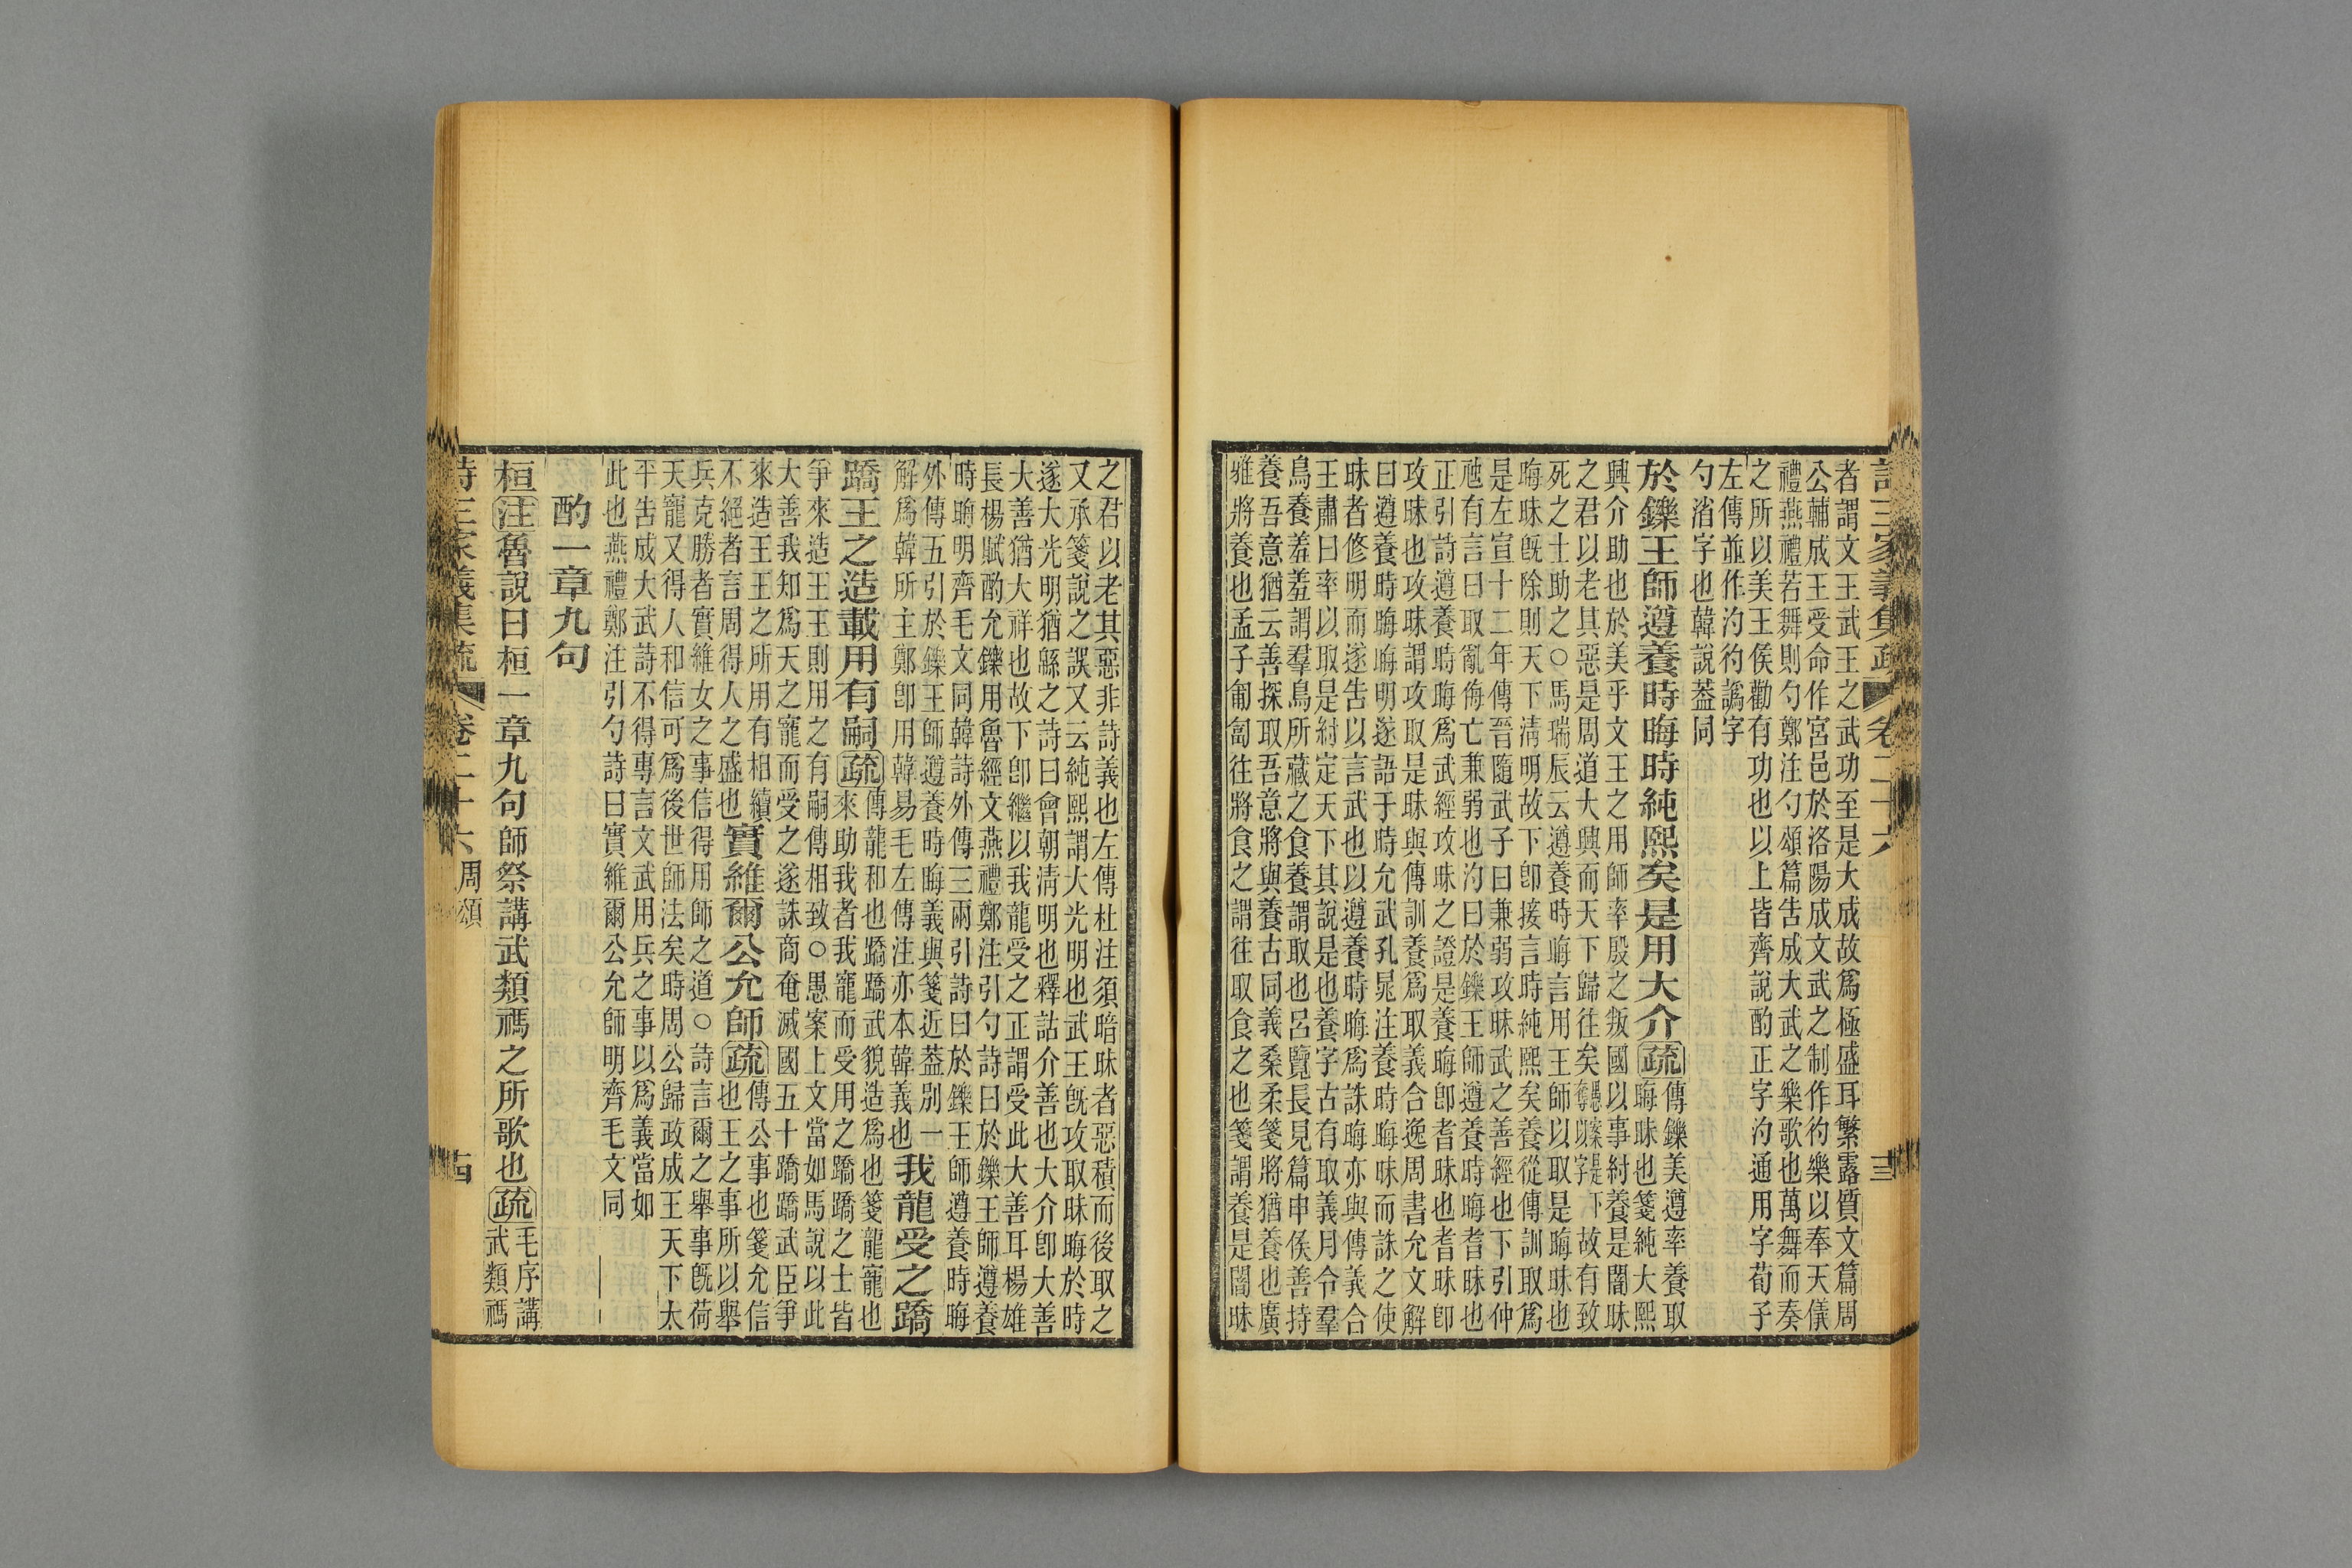 詩三家義集疏 卷二十六 十三
者謂文王武王之武功至是大成故爲極盛耳繁露質文篇周
公輔成王受命作宮邑於洛陽成文武之制作汋樂以奉天儀
禮燕禮若舞則勺鄭注勺頌篇告成大武之樂歌也萬舞而奏
之所以美王侯勸有功也以上皆齊說酌正字汋通用字荀子
左傳並作汋彴譌字
勺渻字也韓說葢同
於鑠王師遵養時晦時純熙矣是用大介疏
傳鑠美遵率養取
晦昧也箋純大熙
興介助也於美乎文王之用師率殷之叛國以事紂養是闇昧
之君以老其惡是周道大興而天下歸往矣故有致
死之士助之○馬瑞辰云遵養時晦言用王師以取是晦昧也
晦昧旣除則天下淸明故下卽接言時純熙矣養從傳訓取爲
是左宣十二年傳晉隨武子曰兼弱攻昧武之善經也下引仲
虺有言曰取亂侮亡兼弱也汋曰於鑠王師遵養時晦耆昧也
正引詩遵養時晦爲武經攻昧之證是養晦卽耆昧也耆昧卽
攻昧也攻昧謂攻取是昧與傳訓養爲取義合逸周書允文解
曰遵養時晦晦明遂語于時允武孔晁注養時晦昧而誅之使
昧者修明而遂告以言武也以遵養時晦爲誅晦亦與傳義合
王肅曰率以取是紂定天下其說是也養字古有取義月令羣
鳥養羞羞謂羣鳥所藏之食養謂取也呂覽長見篇申侯善持
養吾意猶云善探取吾意將與養古同義桑柔箋將猶養也廣
雅將養也孟子匍匐往將食之謂往取食之也箋謂養是闇昧
之君以老其惡非詩義也左傳杜注須暗昧者惡積而後取之
又承箋說之誤又云純熙謂大光明也武王旣攻取昧晦於時
遂大光明猶緜之詩曰會朝淸明也釋詁介善也大介卽大善
大善猶大祥也故下卽繼以我龍受之正謂受此大善耳楊雄
長楊賦酌允鑠用魯經文燕禮鄭注引勺詩曰於鑠王師遵養
時晦明齊毛文同韓詩外傳三兩引詩曰於鑠王師遵養時晦
外傳五引於鑠王師遵養時晦義與箋近葢別一
解爲韓所主鄭卽用韓易毛左傳注亦本韓義也我龍受之蹻
蹻王之造載用有嗣疏
傳龍和也蹻蹻武貌造爲也箋龍寵也
來助我者我寵而受用之蹻蹻之士皆
爭來造王王則用之有嗣傳相致○愚案上文當如馬說以此
大善我知爲天之寵而受之遂誅商奄滅國五十蹻蹻武臣爭
來造王王之所用有相續實維爾公允師疏傳公事也箋允信
不絕者言周得人之盛也也王之事所以舉
兵克勝者實維女之事信得用師之道○詩言爾之舉事旣荷
天寵又得人和信可爲後世師法矣時周公歸政成王天下太
平告成大武詩不得專言文武用兵之事以爲義當如
此也燕禮鄭注引勺詩曰實維爾公允師明齊毛文同
酌一章九句
桓注魯說曰桓一章九句師祭講武類禡之所歌也疏
毛序講
武類禡
詩三家義集疏 卷二十六 周頌 十四